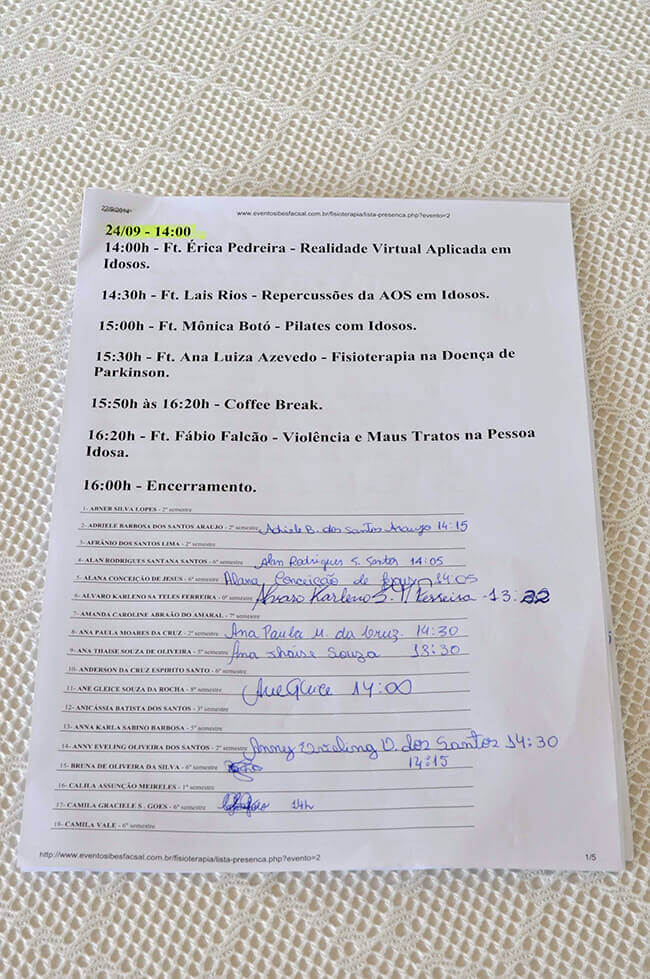 22/9/2014
www.eventosibesfacsal.com.br/fisioterapia/lista-presenca.php?evento=2
24/09 - 14:00
14:00h - Ft. Érica Pedreira - Realidade Virtual Aplicada em
Idosos.
14:30h - Ft. Lais Rios - Repercussões da AOS em Idosos.
15:00h - Ft. Mônica Botó - Pilates com Idosos.
15:30h - Ft. Ana Luiza Azevedo - Fisioterapia na Doença de
Parkinson.
15:50h às 16:20h - Coffee Break.
16:20h - Ft. Fábio Falcão - Violência e Maus Tratos na Pessoa
Idosa.
16:00h - Encerramento.
1- ABNER SILVA LOPES - 2º semestre
2- ADRIELE BARBOSA DOS SANTOS ARAUJO - 2º semestre Adriele B. dos Santos Araujo 14:15
3- AFRÂNIO DOS SANTOS LIMA - 2º semestre
4- ALAN RODRIGUES SANTANA SANTOS - 6º semestre Alan Rodrigues S. Santos 14:05
5- ALANA CONCEIÇÃO DE JESUS - 6º semestre Alana Conceição de 14:05
6- ALVARO KARLENO SA TELES FERREIRA - 0º semestre Alvaro Karleno S. T. Ferreira - 13:
7- AMANDA CAROLINE ABRAÃO DO AMARAL - 7º semestre
8- ANA PAULA MOARES DA CRUZ - 2º semestre Ana Paula M. da Cruz. 14:30
9- ANA THAISE SOUZA DE OLIVEIRA - 5º semestre Ana Thaise Souza 18:30
10- ANDERSON DA CRUZ ESPIRITO SANTO - 6º semestre
11- ANE GLEICE SOUZA DA ROCHA - 8º semestre 14:00
12- ANICÁSSIA BATISTA DOS SANTOS - 3º semestre
13- ANNA KARLA SABINO BARBOSA - 5º semestre
14- ANNY EVELING OLIVEIRA DOS SANTOS - 2º semestre Anny Eveling O. dos Santos 14:30
15- BRUNA DE OLIVEIRA DA SILVA - 6º semestre 14:15
16- CALILA ASSUNÇÃO MEIRELES - 1º semestre
17- CAMILA GRACIELE S. GOES - 6º semestre 14h
18- CAMILA VALE - 6º semestre
http://www.eventosibesfacsal.com.br/fisioterapia/lista-presenca.php?evento=2
1/5